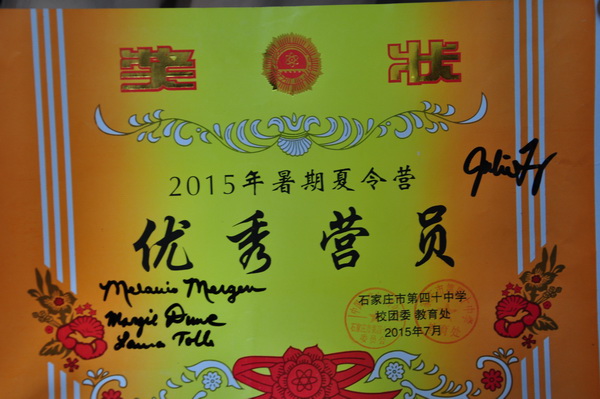 奖 状
2015年暑期夏令营
优秀营员
Melanie Mergen
石家庄市第四十中学
校团委 教育处
2015年7月